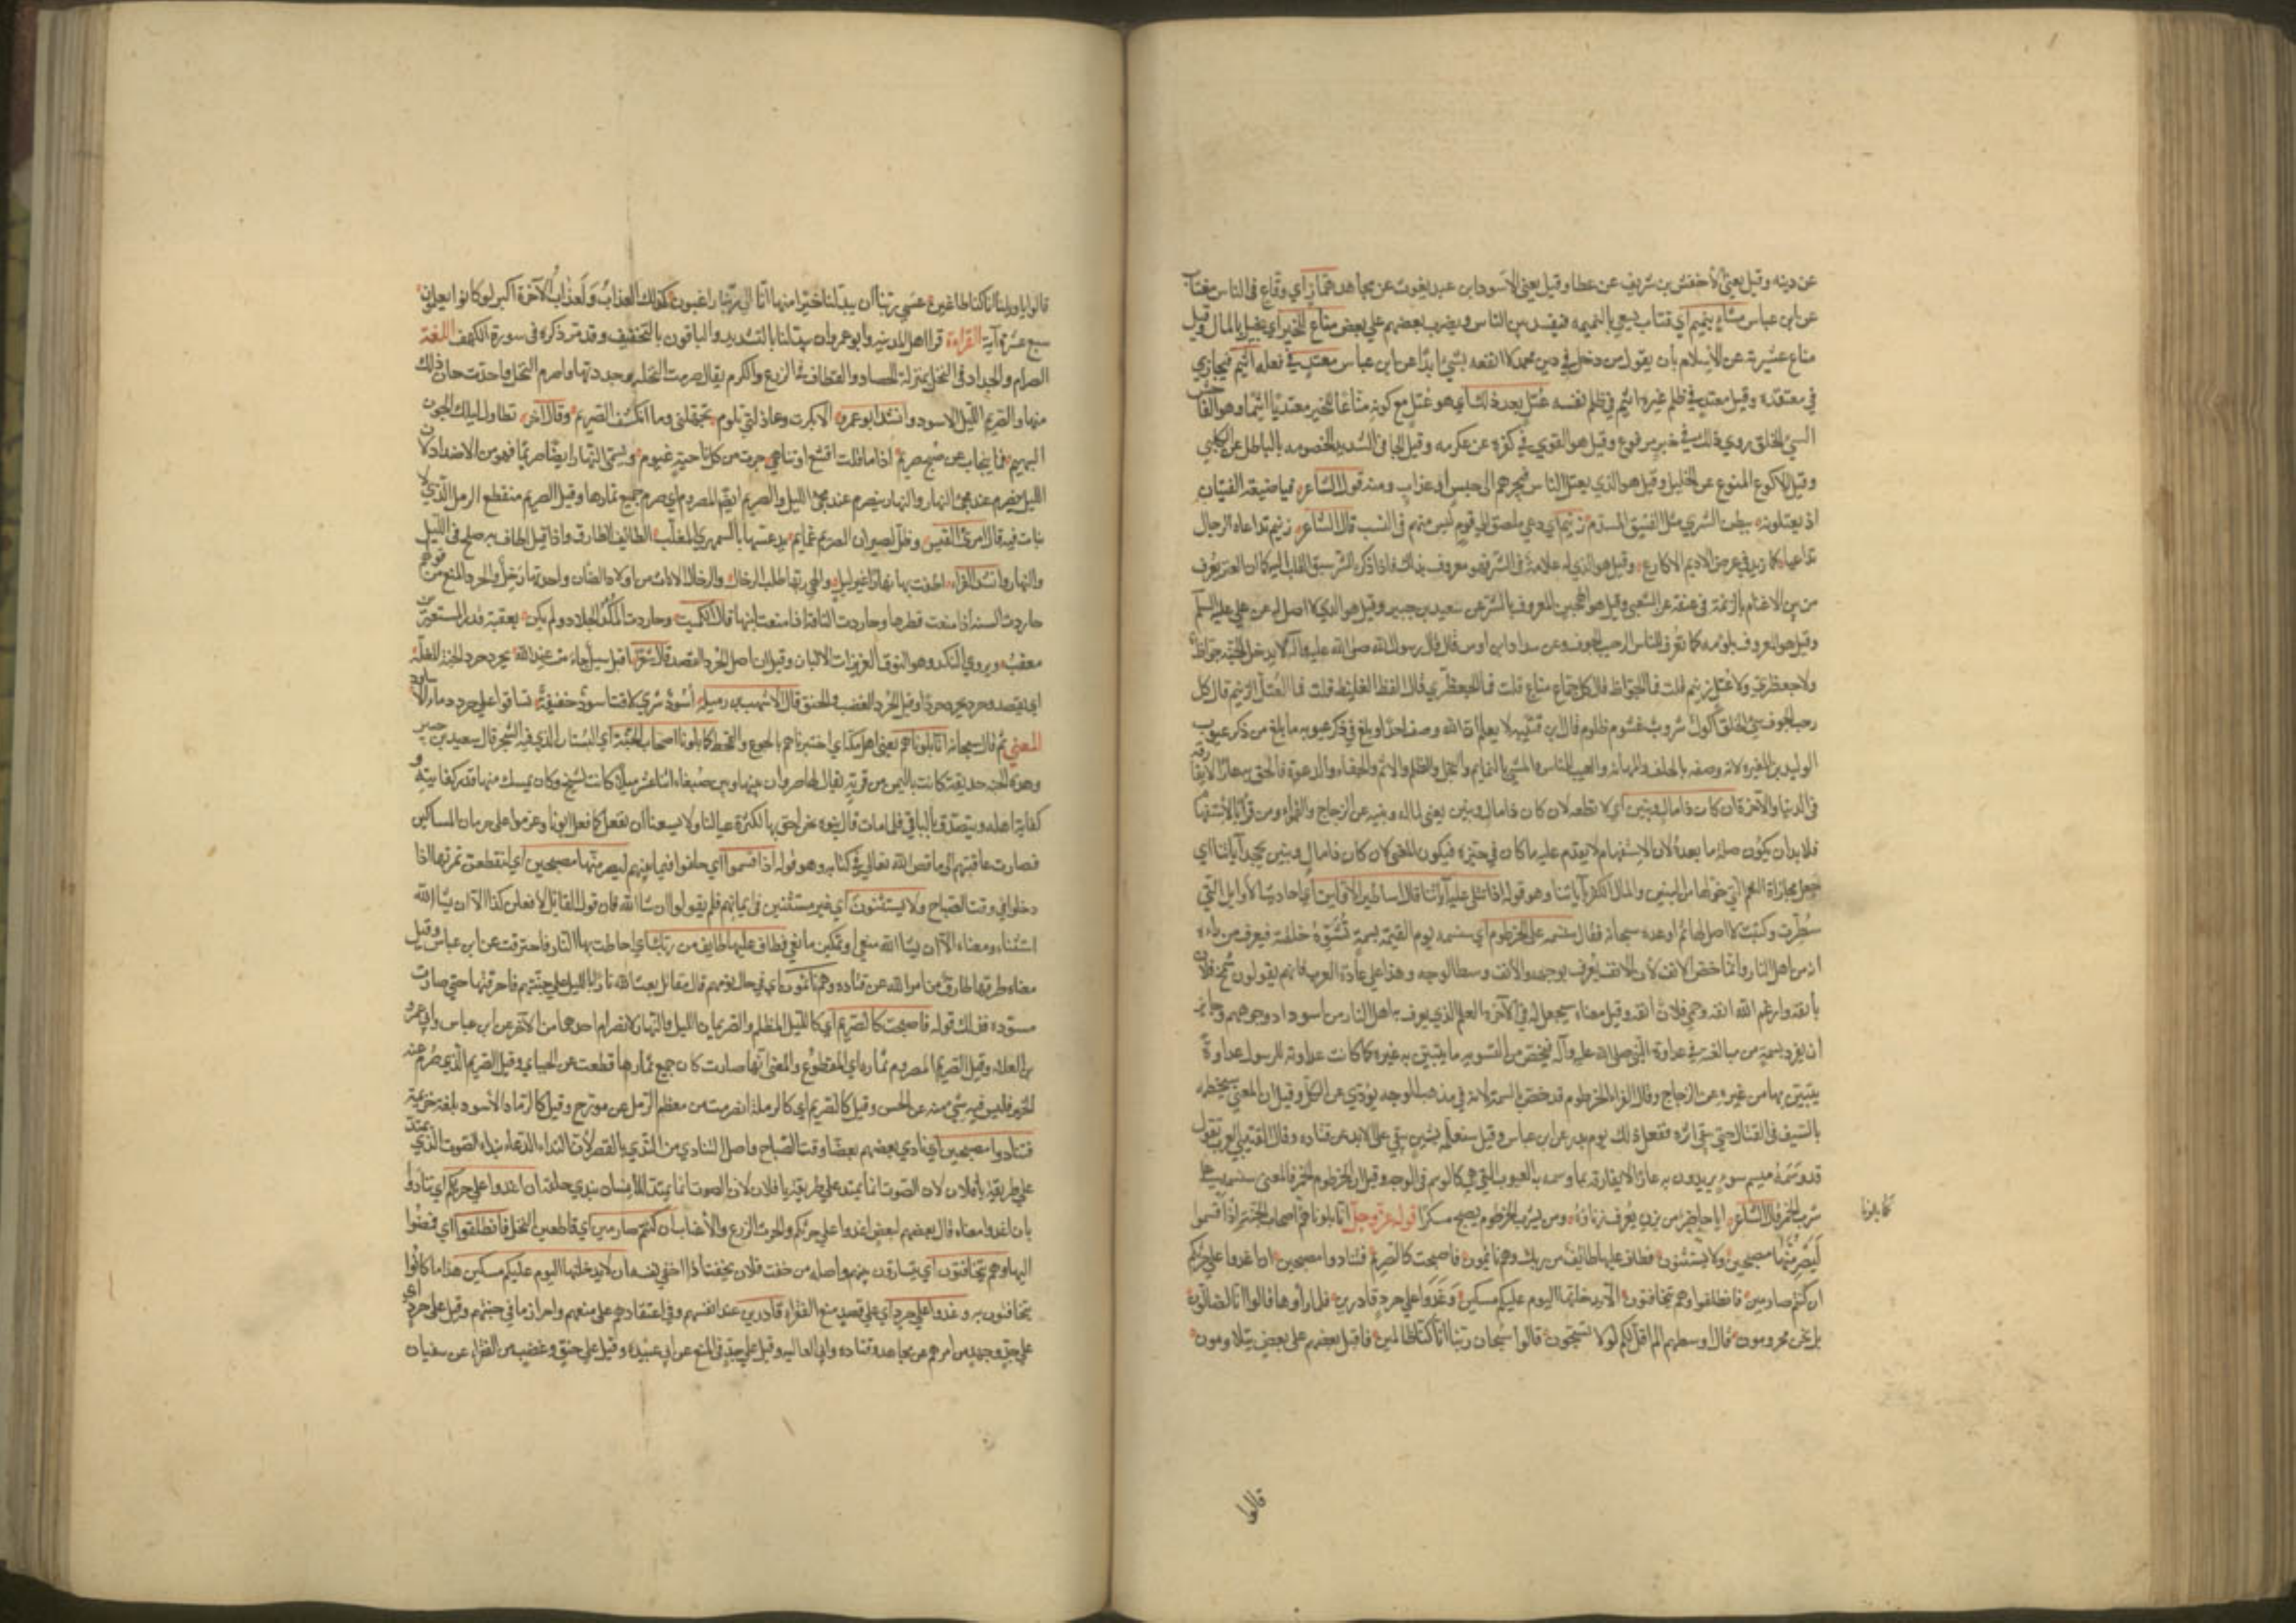 عن دينه وقيل يعني الأخفش بن شريف عن عطا وقيل يعني الأسود بن عبد يغوث عن مجاهد همّاز اي وقاع فى الناس مغتاب
عن ابن عباس مشّاء بنميم اي قتاب يسعي بالنميمه فيفسد بين الناس ويضرب بعضهم علي بعض مناع للخير اي بخيل بالمال وقيل
مناع عشيرته عن الإسلام بان يقول من دخل في دين محمد لا انفعه بشئ ابدًا عن ابن عباس معتدٍ في فعله اثيم
في معتقده وقيل معتدٍ في ظلم غيره اثيم في ظلم نفسه عُتلّ بعد ذلك اي هو عُتل مع كونه منّاعًا للخير معتديًا اثيمًا وهو الفاحش
السيئ الخلق روي ذلك في خبر مرفوع وقيل هو القوي في كفره عن عكرمه وقيل الجافي الشديد الخصومه بالباطل عن الكلبي
وقيل الاكول المنوع عن الخليل وقيل هو الذي يعتل الناس فيجرهم الى حبس او عذاب ومنه قول الشاعر فياضيعة الفتيان
اذ يعتلونه ببطن الشري مثل الفنيق المسدّم زنيم اي دعي ملصق الي قوم ليس منهم فى النسب قال الشاعر زنيم تداعاه الرجال
تداعيا كما زيد في عرض الاديم الاكارع وقيل هو الذي له علامة فى الشر وهو معروف بذلك فاذا ذكر الشر سبق القلب اليه كما ان العنز يعرف
من بين الاغنام بالزنمة فى عنقه عن الشعبي وقيل هو الهجين المعروف بالشر عن سعيد بن جبير وقيل هو الذي لا اصل له عن علي عليه السلم
وقيل هو المعروف بلؤمه كما تعرف الناس الرحب الجوف وعن شداد ابن اوس قال قال رسول الله صلى الله عليه وآله لا يدخل الجنة جواظ
ولا جعظري ولا عُتل زنيم قلت فما الجواظ قال كل جمّاع منّاع قلت فما الجعظري قال الفظ الغليظ قلت فما العُتل الزنيم قال كل
رحب الجوف سيئ الخلق أكول شروب غشوم ظلوم قال ابن قتيبه لا يعلم ان الله وصف احدًا وبلغ في ذكر عيوبه ما بلغ من ذكر عيوب
الوليد بن المغيره لانه وصفه بالحلف والمهانة والعيب للناس والمشي بالنمايم والبخل والظلم والاثم والجفاء والدعوة فالحق به عارًا لا يفارقه
فى الدنيا والآخرة ان كان ذا مال وبنين اي لا تطعه لان كان ذا مال وبنين يعني لماله وبنيه عن الزجاج والفراء ومن قرأ بالاستفهام
فلا بد ان يكون صلة ما بعده لان الاستفهام لا يتقدم عليه ما كان في حيزه فيكون المعني لان كان ذا مال وبنين يجحد آياتنا اي
جعل مجازاة النعم التي خوّلها من البنين والمال الكفر بآياتنا وهو قوله اذا تتلى عليه آياتنا قال اساطير الأولين اي احاديث الاوايل التي
سُطرت وكتبت لا اصل لها ثم اوعده سبحانه فقال سنسمه على الخرطوم اي سنسمه يوم القيمة بسمةٍ تُشوّه خلقته فيعرف من رءاه
انه من اهل النار وانما خصّ الانف لان الانسان يعرف بوجهه والأنف وسط الوجه وهذا علي عادة العرب فانهم يقولون شمخ فلان
بأنفه وارغم الله انفه وحمي فلان انفه وقيل معناه سيجعل له في الآخرة العلم الذي يعرف به اهل النار من اسوداد وجوههم وجائز
ان يفرد بسمة من مبالغته في عداوة النبي صلى الله عليه وآله فيخص من التشويه ما يتبين به غيره كما كانت عداوته للرسول عداوة
يتبيّن بها من غيره عن الزجاج وقال الفراء الخرطوم قد خصّ بالسمة لانه في مذهب الوجه يؤدي عن الكل وقيل ان المعنى سيخطمه
بالسيف فى القتال حتى يبقى اثره ففعل ذلك يوم بدر عن ابن عباس وقيل سنعلمه بشين يبقى على الابد عن قتاده وقال القتيبي العرب تقول
قد وسَمهُ ميسم سوءٍ يريدون به عارًا لا يفارقه بما وسمه به العيوب التي هي كالوسم فى الوجه وقيل ان الخرطوم الخمر فالمعنى سنسمه على
شرب الخمر قال الشاعر ابا حاضر من يزن يُعرف زناؤه ومن يشرب الخرطوم يصبح مسكرًا قوله عز وجل انّا بلوناهم أصحاب الجنة اذ أقسموا
كما بلونا
لَيَصْرِمُنّها مصبحين ولا يستثنون فطاف عليها طائف من ربك وهم نايمون فاصبحت كالصريم فتنادوا مصبحين ان اغدوا على حرثكم
ان كنتم صارمين فانطلقوا وهم يتخافتون الاّ يدخلنّها اليوم عليكم مسكين وغدوا على حردٍ قادرين فلما رأوها قالوا انا لضالون
بل نحن محرومون قال اوسطهم الم اقل لكم لولا تسبحون قالوا سُبحان ربنا انّا كنا ظالمين فاقبل بعضهم على بعض يتلاومون
قالوا
قالوا يا ويلنا انّا كنا طاغين عسى ربنا أن يبدلنا خيرًا منها انّا الى ربّنا راغبون كذلك العذاب ولَعذاب الآخرة اكبر لو كانوا يعلمون
سبع عشرة آية القراءة قرا اهل المدينه وابو عمرو ان يبدّلنا بالتشديد والباقون بالتخفيف وقد مرّ ذكره فى سورة الكهف اللغة
الصرام والجداد فى النخل بمنزلة الحصاد والقطاف فى الزرع والكرم يقال صرمت النخلة وجددتها واصرم النخل واجدّ حان ذلك
منها والصريم الليل الاسود وانشد ابو عمرو الا بكرت وعاذلتي تلوم تجهّلني وما انكشف الصريم وقال آخر تطاول ليلك الجون
البهيم فما ينجاب عن صبح صريم اذا ما قلت اقشع او تناهى جرت من كل ناحية غيوم ويسمى النهار ايضًا صريمًا فهو من الاضداد لان
الليل ينصرم عند مجئ النهار والنهار ينصرم عند مجئ الليل والصريم ايضًا المصروم اي صرم جميع ثمارها وقيل الصريم منقطع الرمل الذي لا
نبات فيه قال امرئ القيس وظل لصيران الصريم غماغم يدعّسها بالسمهري المعلّب الطائف الطارق واذا قيل اطاف به صلح فى الليل
والنهار وانشد الفراء اطفت بها نهارًا غير ليلٍ والهي ربّها طلب الرخال والرخال الاناث من اولاد الضان واحدتها رخل والحرد المنع من قولهم
حاردت السنة اذا منعت قطرها وحاردت الناقة اذا منعت لبنها قال الكميت وحاردت المُكُدّ الجلاد ولم يكن بعقبة قدر المستعيرين
معقب ويروي النكد وهو النوق الغزيرات الالبان وقيل ان اصل الحرد القصد قال شعر اقبل سيل جاء من عند الله يحرد حرد الجنة المغلّة
اي يقصد وحرد يحرد حردًا وقيل الحرد الغضب والحنق قال الاشهب بن رميلة أسود شرى لاقت اسود خفيّة تساقوا على حرد دماء الاساود
المعني ثم قال سبحانه انّا بلوناهم يعني اهل مكة اي اختبرناهم بالجوع والقحط كما بلونا اصحاب الجنّة اي البستان الذي فيه الشجر قال سعيد بن جبير
وهذه الجنة حديقة كانت باليمن من قريةٍ يقال لها صروان بينها وبين صنعاء اثنا عشر ميلاً كانت لشيخ وكان يمسك منها قدر كفايته و
كفاية اهله ويتصدق بالباقي فلما مات قال بنوه نحن احق بها لكثرة عيالنا ولا يسعنا أن نفعل كما فعل ابونا وعزموا على حرمان المساكين
فصارت عاقبتهم الى ما قص الله تعالى في كتابه وهو قوله اذ اقسموا اي حلفوا فيما بينهم ليصرمنّها مصبحين اي ليقطعن ثمرتها اذا
دخلوا في وقت الصباح ولا يستثنون أي غير مستثنين فى ايمانهم فلم يقولوا ان شاء الله فان قول القائل لأفعلن كذا الاّ ان يشاء الله
استثناء ومعناه الاّ ان يشاء الله منعي او تمكين مانعي فطاف عليها طايف من ربك اي احاطت بها النار فاحترقت عن ابن عباس وقيل
معناه طرقها طارق من امر الله عن قتاده وهم نائمون اي في حال نومهم قال مقاتل بعث الله نارًا بالليل على جنتهم فاحرقتها حتى صارت
مسودّه فذلك قوله فاصبحت كالصريم اي كالليل المظلم والصريمان الليل والنهار لانصرام احدهما من الآخر عن ابن عباس وابي عمرو
بن العلاء وقيل الصريم المصروم ثماره اي المقطوع والمعني انّها صارت كان جميع ثمارها قطعت عن الجبائي وقيل الصريم الذي صُرم عنه
الخير فليس فيه شئ منه عن الحسن وقيل كالصريم اي كالرملة انصرمت من معظم الرمل عن مورّج وقيل كالرماد الأسود بلغة خزيمة
فتنادوا مصبحين اي نادي بعضهم بعضًا وقت الصباح واصل التنادي من الندي بالقصر لأن النداء الدعاء بنداء الصوت الذي يمتدّ
علي طريقة يا فلان لان الصّوت انما يمتد علي طريقة يا فلان لان الصوت انما يمتدّ للانسان بندي حلقه ان اغدوا علي حرثكم اي تنادوا
بان اغدوا معناه قال بعضهم لبعض اغدوا على حرثكم والحرث الزرع والأعناب ان كنتم صارمين اي قاطعين النخل فانطلقوا اي فمضوا
اليها وهم يتخافتون أي يتسارّون بينهم واصله من خفت فلان يخفت اذا اخفي نفسه ان لا يدخلنها اليوم عليكم مسكين هذا ما كانوا
يتخافتون به وغدوا علي حردٍ اي علي قصد منع الفقراء قادرين عند انفسهم وفي اعتقادهم على منعهم واحراز ما في جنتهم وقيل على حردٍ اي
على جدٍ وجهد من أمرهم عن مجاهد وقتاده وابي العاليه وقيل على جدٍ فى المنع عن ابي عبيده وقيل على حنق وغضب من الفقراء عن سفيان